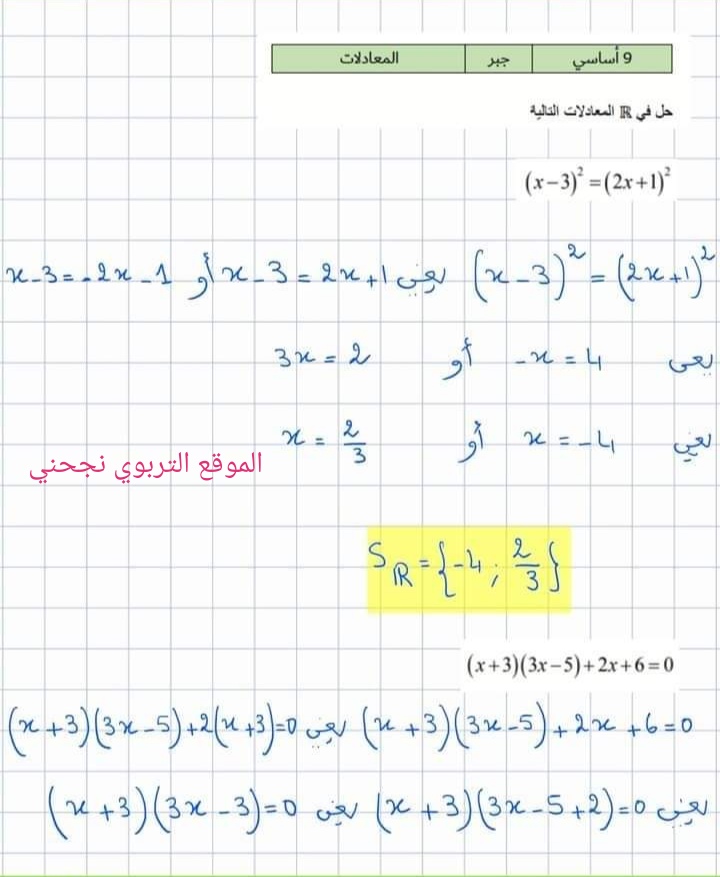 9 أساسي جبر المعادلات
حل في ℝ المعادلات التالية
(x−3)²=(2x+1)²
(x−3)² = (2x+1)² يعني x−3 = 2x+1 أو x−3 = −2x−1
يعني −x = 4 أو 3x = 2
يعني x = −4 أو x = 2/3
الموقع التربوي نجحني
S_ℝ = {−4 ; 2/3}
(x+3)(3x−5)+2x+6=0
(x+3)(3x−5)+2x+6=0 يعني (x+3)(3x−5)+2(x+3)=0
يعني (x+3)(3x−5+2)=0 يعني (x+3)(3x−3)=0